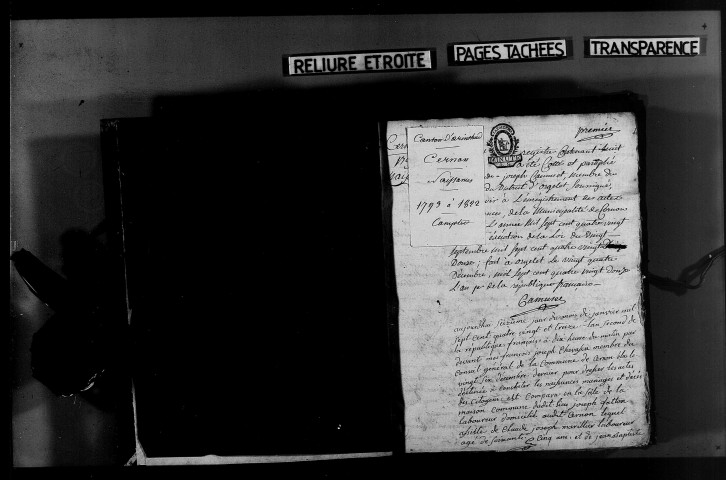 RELIURE ETROITE
PAGES TACHEES
TRANSPARENCE
premier
Canton d'arinthod
Cernon
Naissances
1793 à 1802
Complet
registre Contenant huit
été Cotté et paraphé
joseph Camuset, membre du
du district d'orgelet, soussigné,
à L'enregistrement des actes
de la Municipalité de Cernon
L'année mil sept cent quatre vingt
éxécution de la Loi du vingt
septembre mil sept cent quatre vingt
Douze; fait à orgelet Le vingt quatre
Décembre, mil sept cent quatre vingt douze
L'an 1er de la république française.
Camuset
aujourdhui seizieme jour du mois de janvier mil
sept cent quatre vingt et treize l'an second de
la république françoise à dix heure du matin par
devant moi françois joseph membre du
Conseil général de la Commune de Cernon élu le
vingt six décembre dernier pour dresser les actes
destinés à constater les naissances mariages et décès
des citoyens est comparu en la salle de la
maison commune dudit lieu joseph
laboureur domicilié audit Cernon lequel
assisté de Claude joseph laboureur
agé de soixante Cinq ans, et de jean baptiste